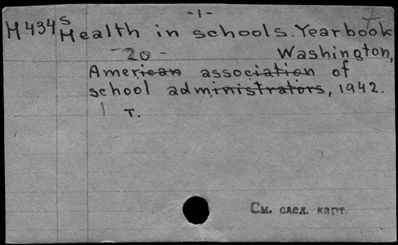 -1-
H434s Health in schools. Yearbook
20 Washington,
American association of
school administrators, 1942.
1 т.
См. след. карт.